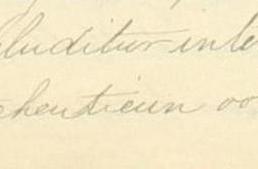 luditur inte
thenticum oo